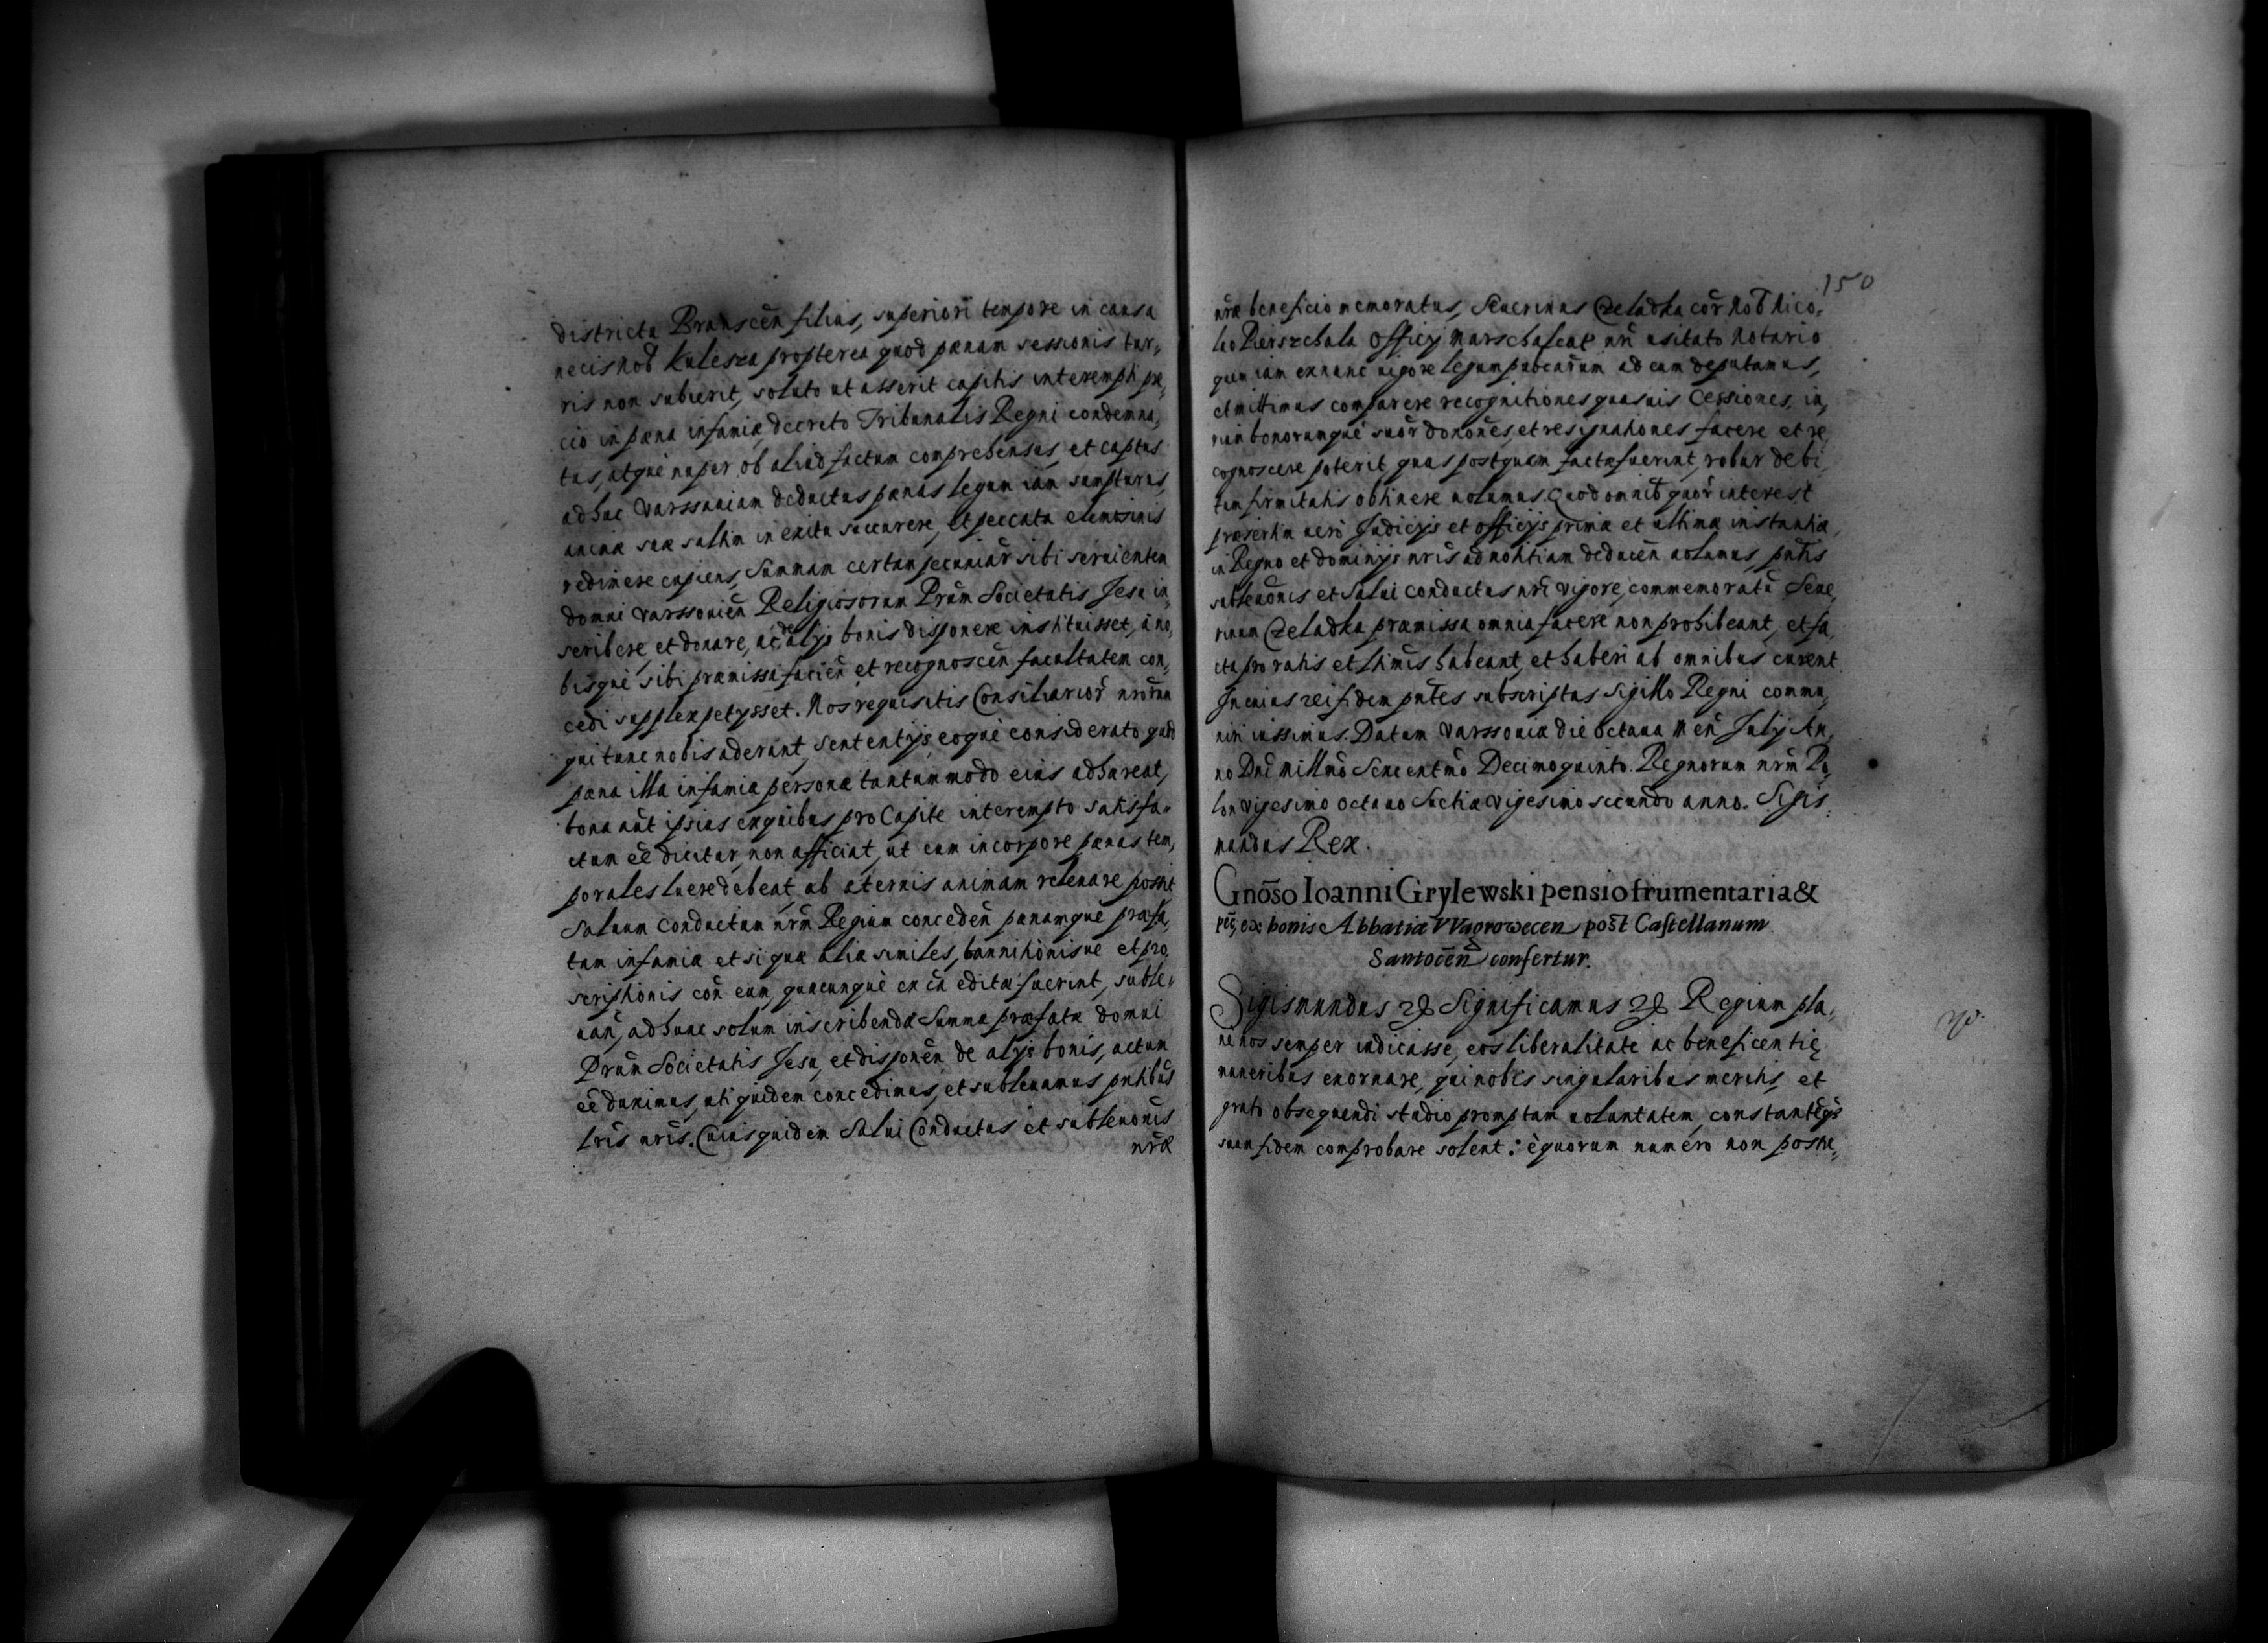 districtu Branscen̄ filius, superiori tempore in causa
necis Nob̄ Kulesza propterea quod pænam sessionis tur„
ris non subierit, soluto ut asserit capitis interempti pre„
cio in pæna infamiæ, decreto Tribunalis Regni condemna„
tus, atque nuper ob aliud factum comprehensus, et captus
adhuc Varssauiam deductus pænas legum iam sumpturus,
animæ suæ saltim in exitu succurere, et peccata elemosinis
redimere cupiens, Summam certam pecuniar̄ sibi seruientem
domui Varssouien̄ Religiosorum Prūm Societatis Jesu in„
scribere, et donare, ac de alijs bonis disponere instituisset, à no„
bisque sibi præmissa facien̄ et recognoscen̄ facultatem con„
cedi supplex petysset. Nos requisitis Consiliarior̄ nrōrum
qui tunc nobis aderant, sententijs, eoque considerato quod
pæna illa infamiæ personæ tantummodo eius adhæreat,
bona aūt ipsius ex quibus pro Capite interempto satisfa„
ctum eē dicitur, non afficiat, ut cum in corpore pænas tem„
porales luere debeat, ab æternis animam releuare possit
Saluum Conductum nrm̄ Regium conceden̄ pænamque præfa„
tam infamiæ et si quæ aliæ similes, bannitionisue et pro„
scriptionis con̄ eum, quacunque ex cā editæ fuerint, suble„
uan̄, adhunc solum inscribendæ Summæ præfatæ domui
Prūm Societatis Jesu, et disponen̄ de alijs bonis, actum
eē duximus, uti quidem concedimus, et subleuamus pn̄tibus
lris̄ nris̄. Cuius quidem Salui Conductus et subleuōnis
nrǣ
150
nrǣ beneficio memoratus, Seuerinus Czeladka cor̄ Nob̄ Nico„
lao Pierszchala Officij Marschalcat̄ nri̅ usitato Notario
quem iam exnunc uigore legum pub̄carum ad eum deputamus,
et mittimus comparere recognitiones quasuis Cessiones, in„
rium bonorumque suor̄ donōnes, et resignationes facere et re„
cognoscere poterit, quas postquam factæ fuerint, robur debi„
tum firmitatis obtinere uolumus. Quod omnib̄ quor̄ interest
præsertim uero Judicijs et officijs primæ et ultimæ instantiæ,
in Regno et dominijs nris̄ ad notitiam deducen̄ uolumus, pn̄tis
subleuōnis et Salui conductus nri̅ vigore, commemoratū Seue„
rinum Czeladka præmissa omnia facere non prohibeant, et fa„
cta pro ratis et ltimis̄ habeant, et haberi ab omnibus curent.
In cuius rei fidem pn̄tes subscriptas Sigillo Regni commu„
niri iussimus. Datum Varssouiæ die Octaua Men̄ Julij An„
no Dnī Millm̄o Sexcentm̄o Decimoquinto. Regnorum nrm̄ Po„
lon Vigesimo Octauo Suetiæ Vigesimo secundo anno. Sigis„
mundus Rex.
Gnōso Ioanni Grylewski pensio frumentaria &
pec̄, ex bonis Abbatiæ VVagrowecen post Castellanum
Santocen̄ confertur.
Sigismundus &c Significamus &c Regium pla„
ne nos semper iudicasse, eos liberalitate ac beneficentię
muneribus exornare, qui nobis singularibus meritis, et
grato obsequendi studio promptam uoluntatem, constantēq3
suam fidem comprobare solent: è quorum numero non postre„